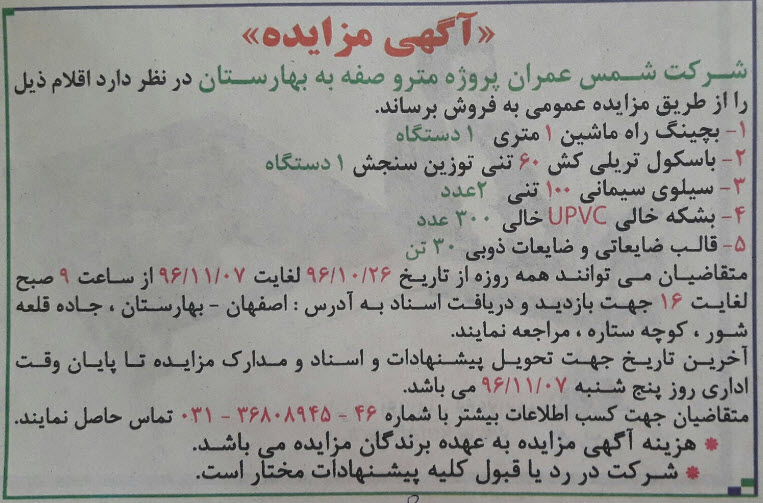 «آگهی مزایده»
شرکت شمس عمران پروژه مترو صفه به بهارستان در نظر دارد اقلام ذیل
را از طریق مزایده عمومی به فروش برساند.
۱- بچینگ راه ماشین ۱ متری ۱ دستگاه
۲- باسکول تریلی کش ۶۰ تنی توزین سنجش ۱ دستگاه
۳- سیلوی سیمانی ۱۰۰ تنی ۲عدد
۴- بشکه خالی UPVC خالی ۳۰۰ عدد
۵- قالب ضایعاتی و ضایعات ذوبی ۳۰ تن
متقاضیان می توانند همه روزه از تاریخ ۹۶/۱۰/۲۶ لغایت ۹۶/۱۱/۰۷ از ساعت ۹ صبح
لغایت ۱۶ جهت بازدید و دریافت اسناد به آدرس : اصفهان - بهارستان ، جاده قلعه
شور ، کوچه ستاره ، مراجعه نمایند.
آخرین تاریخ جهت تحویل پیشنهادات و اسناد و مدارک مزایده تا پایان وقت
اداری روز پنج شنبه ۹۶/۱۱/۰۷ می باشد.
متقاضیان جهت کسب اطلاعات بیشتر با شماره ۴۶ - ۳۶۸۰۸۹۴۵ - ۰۳۱ تماس حاصل نمایند.
* هزینه آگهی مزایده به عهده برندگان مزایده می باشد.
* شرکت در رد یا قبول کلیه پیشنهادات مختار است.